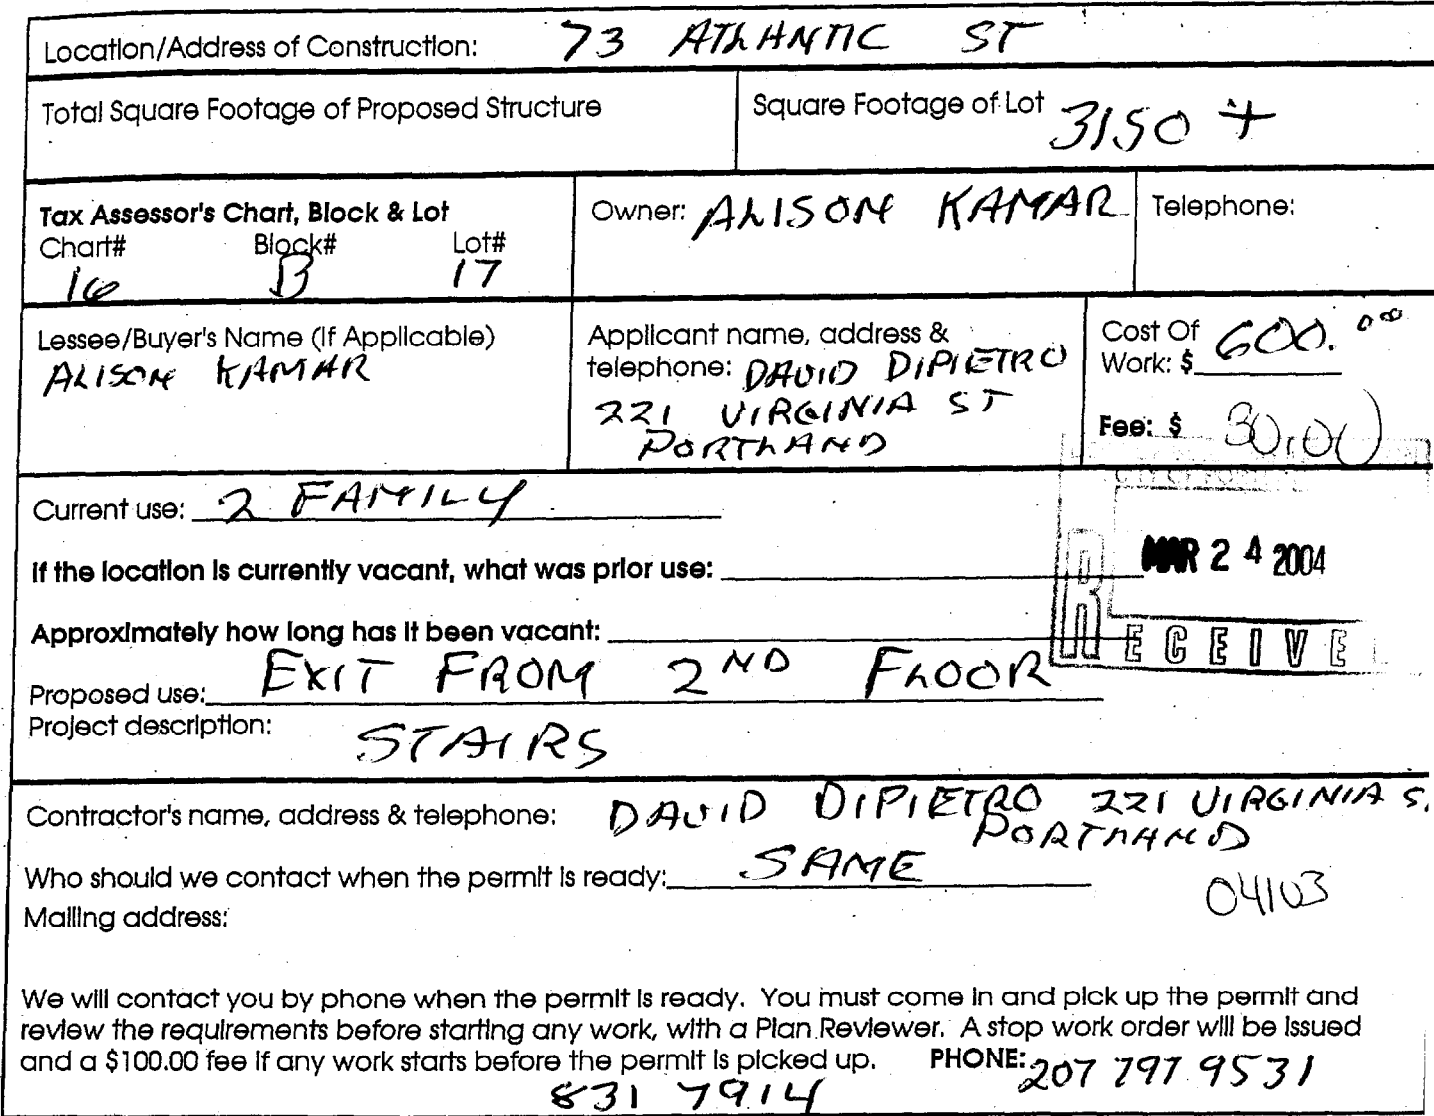 Location/Address of Construction: 73 ATLANTIC ST
Total Square Footage of Proposed Structure
Square Footage of Lot 3150 +
Tax Assessor's Chart, Block & Lot
Chart# Block# Lot#
16 B 17
Owner: ALISON KAMAR
Telephone:
Lessee/Buyer's Name (If Applicable)
ALISON KAMAR
Applicant name, address &
telephone: DAVID DIPIETRO
221 VIRGINIA ST
PORTLAND
Cost Of
Work: $ 600.00
Fee: $ 30.00
Current use: 2 FAMILY
MAR 24 2004
If the location is currently vacant, what was prior use:
Approximately how long has it been vacant:
RECEIVE
Proposed use: EXIT FROM 2ND FLOOR
Project description: STAIRS
Contractor's name, address & telephone: DAVID DIPIETRO 221 VIRGINIA S.
PORTLAND
Who should we contact when the permit is ready: SAME
04103
Mailing address:
We will contact you by phone when the permit is ready. You must come in and pick up the permit and
review the requirements before starting any work, with a Plan Reviewer. A stop work order will be issued
and a $100.00 fee if any work starts before the permit is picked up. PHONE: 207 797 9531
831 7914